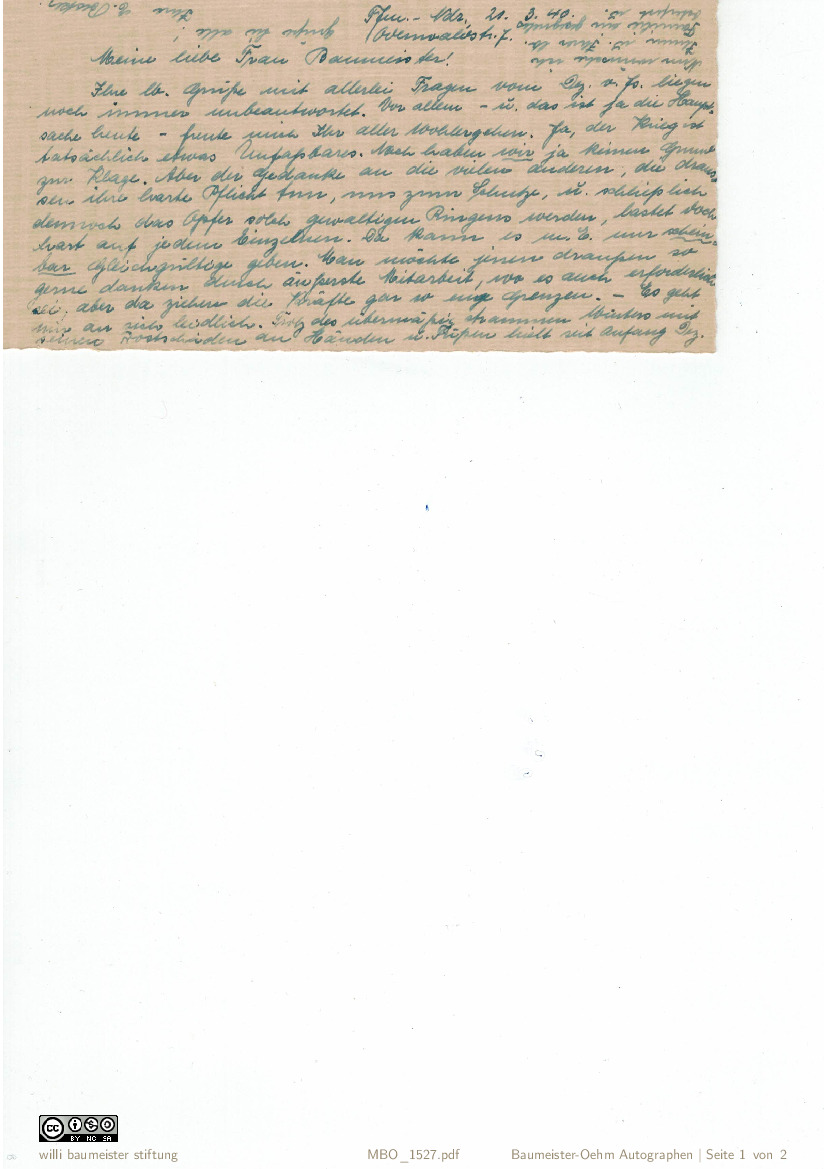 Ffm.- Ndr, 21. 3. 40.
Odenwaldstr. 7.
Meine liebe Frau Baumeister!
Ihre lb. Grüße mit allerlei Fragen vom Dez. v. Js. liegen
noch immer unbeantwortet. Vor allem - u. das ist ja die Haupt-
sache heute - freute mich Ihr aller Wohlergehen. Ja, der Krieg ist
tatsächlich etwas Unfaßbares. Noch haben wir ja keinen Grund
zur Klage. Aber der Gedanke an die vielen anderen, die draus-
sen ihre harte Pflicht tun, uns zum Schutze, u. schließlich
dennoch das Opfer solch gewaltigen Ringens werden, lastet doch
hart auf jedem Einzelnen. Da kann es m. E. nur schein-
bar Gleichgültige geben. Man möchte jenen draußen so
gerne danken durch äußerste Mitarbeit, wo es auch erforderlich
sei, aber da ziehen die Kräfte gar so enge Grenzen. - Es geht
mir an sich leidlich. Trotz des übermäßig strammen Winters mit
seinen Frostschäden an Händen u. Füßen hielt seit Anfang Dez.
grüße Sie alle!
Ihre E.
willi baumeister stiftung
MBO_1527.pdf
Baumeister-Oehm Autographen | Seite 1 von 2
CC BY NC SA